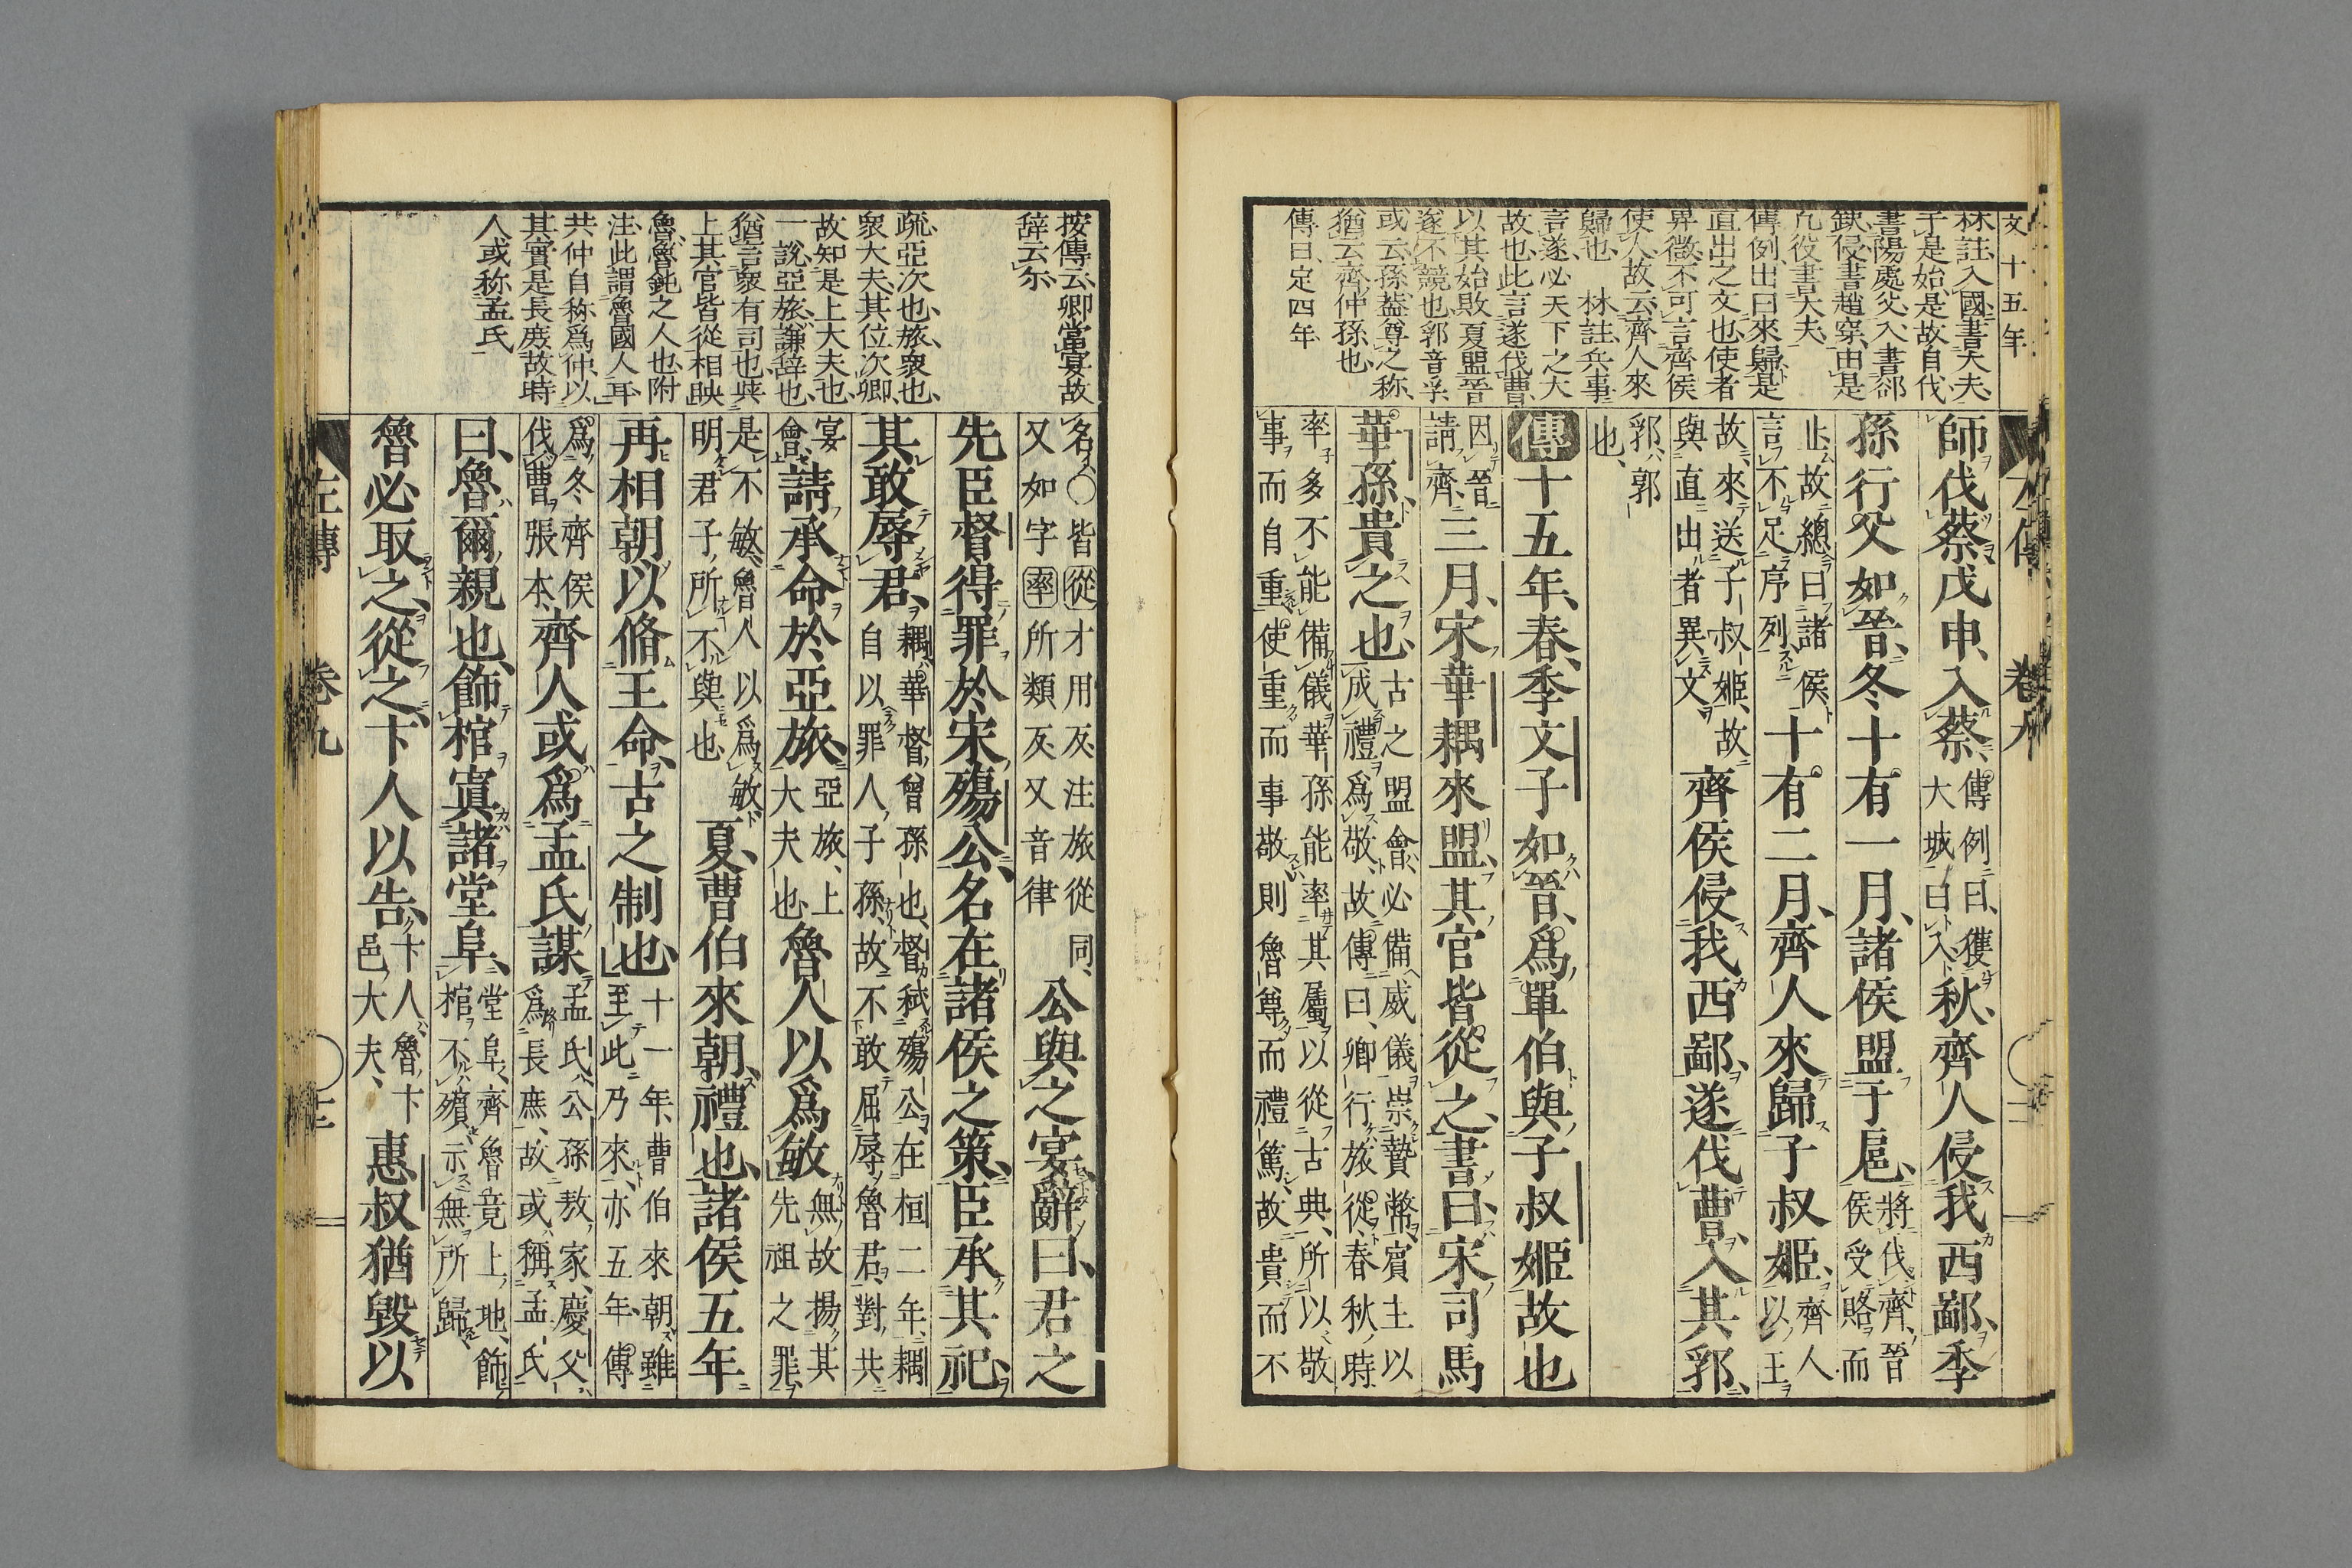 文十五年
林註、入國書大夫、
于是始、是故自伐
書陽處父、入書郤
缺、侵書趙穿、由是
凡役書大夫、
傳例、出曰來歸、是
直出之文也、使者
昇徵、不可言齊侯
使人、故云齊人來
歸也、 林註、兵事
言遂、必天下之大
故也、此言遂伐曹
以其始敗夏盟、晉
遂不競也、郭音孚
或云、孫、蓋尊之称、
猶云齊仲孫也、
傳曰、定四年、
師伐蔡、戊申、入蔡、傳例曰、獲
大城曰入、秋、齊人侵我西鄙、季
孫行父如晉、冬、十有一月、諸侯盟于扈、將伐齊、晉
侯受賂而
止、故總曰諸侯、
言不足序列、十有二月、齊人來歸子叔姬、齊人
以王
故、來送子叔姬、故
與直出者異文、齊侯侵我西鄙、遂伐曹、入其郛、
郛、郭
也、
傳十五年、春、季文子如晉、爲單伯與子叔姬故也
因晉
請齊、三月、宋華耦來盟、其官皆從之、書曰、宋司馬
華孫、貴之也、古之盟會、必備威儀、崇贄幣、賓主以
成禮爲敬、故傳曰、卿行旅從、春秋時
率多不能備儀、華孫能率其屬、以從古典、所以敬
事而自重、使重而事敬、則魯尊而禮篤、故貴而不
左傳 卷九
按傳云、卿當宴、故
辞云尓、
疏、亞次也、旅衆也、
衆大夫、其位次卿、
故知是上大夫也、
一說、亞旅、謙辞也、
猶言衆有司也、與
上其官皆從相映
魯、魯鈍之人也、附
注、此謂魯國人耳、
共仲自称爲仲、以
其實是長庶、故時
人或称孟氏
名、〇皆從才用反、注旅從同、
又如字率所類反、又音律公與之宴、辭曰、君之
先臣督得罪於宋殤公、名在諸侯之策、臣承其祀、
其敢辱君、耦、華督曾孫也、督弑殤公、在桓二年、耦
自以罪人子孫、故不敢屈辱魯君、對共
宴
會、請承命於亞旅、亞旅、上
大夫也、魯人以爲敏無故揚其
先祖之罪、
是不敏、魯人以爲敏、
明君子所不與也、夏、曹伯來朝、禮也、諸侯五年
再相朝、以脩王命、古之制也、十一年、曹伯來朝、雖
至此乃來、亦五年、傳
爲冬齊侯
伐曹張本、齊人或爲孟氏謀、孟氏、公孫敖家、慶父
爲長庶、故或稱孟氏
曰、魯爾親也、飾棺寘諸堂阜、堂阜、齊魯竟上地、飾
棺不殯、示無所歸
魯必取之、從之、卞人以告、卞人、魯卞
邑大夫、惠叔猶毀以
左傳 卷九